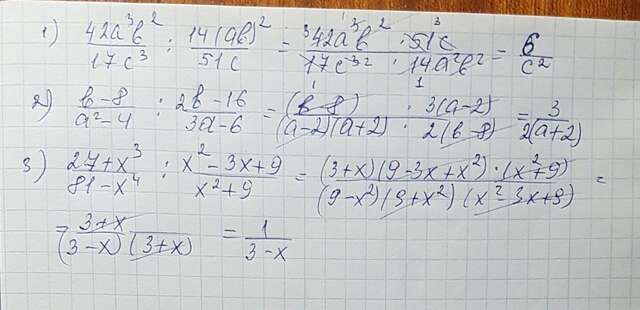 1) 42a³b²/17c³ : 14(ab)²/51c = 42a³b² · 51c / 17c³ · 14a²b² = 6/c²
2) b-8/a²-4 : 2b-16/3a-6 = (b-8) · 3(a-2) / (a-2)(a+2) · 2(b-8) = 3/2(a+2)
3) 27+x³/81-x⁴ : x²-3x+9/x²+9 = (3+x)(9-3x+x²)·(x²+9) / (9-x²)(9+x²)(x²-3x+9) =
= 3+x/(3-x)(3+x) = 1/3-x